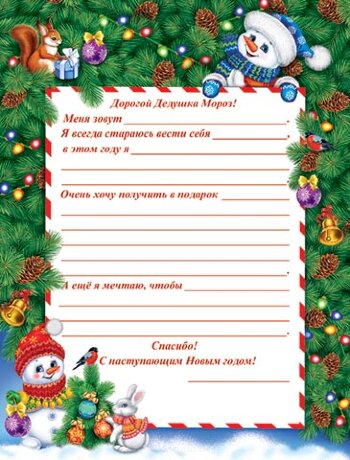 Дорогой Дедушка Мороз!
Меня зовут ____________________.
Я всегда стараюсь вести себя __________,
в этом году я ____________________
______________________________
______________________________.
Очень хочу получить в подарок __________
______________________________
______________________________
______________________________
______________________________.
А ещё я мечтаю, чтобы _______________
______________________________
______________________________
______________________________.
Спасибо!
С наступающим Новым годом!
____________________